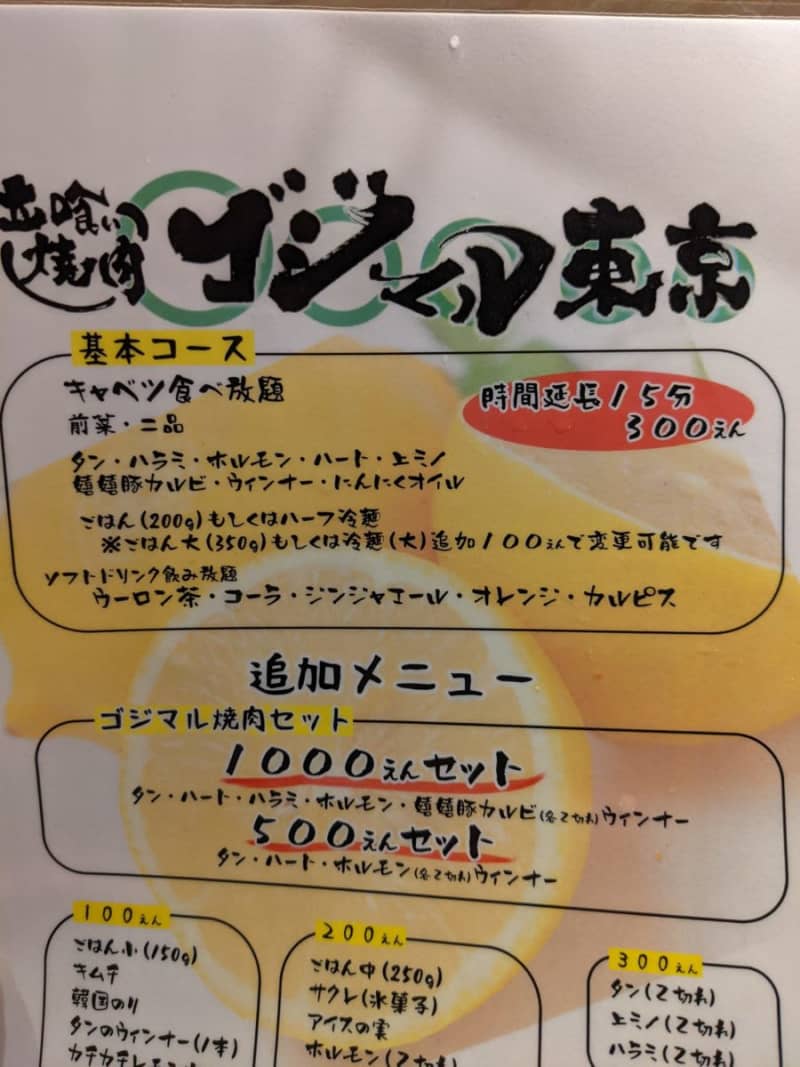 立喰い
焼肉
ゴジマル東京
基本コース
キャベツ食べ放題
前菜・二品
時間延長15分
300えん
タン・ハラミ・ホルモン・ハート・上ミノ
嬉嬉豚カルビ・ウィンナー・にんにくオイル
ごはん(200g)もしくはハーフ冷麺
※ごはん大(350g)もしくは冷麺(大)追加100えんで変更可能です
ソフトドリンク飲み放題
ウーロン茶・コーラ・ジンジャエール・オレンジ・カルピス
追加メニュー
ゴジマル焼肉セット
1000えんセット
タン・ハート・ハラミ・ホルモン・嬉嬉豚カルビ(各2切れ)ウィンナー
500えんセット
タン・ハート・ホルモン(各2切れ)ウィンナー
100えん
ごはん小(150g)
キムチ
韓国のり
タンのウィンナー(1本)
200えん
ごはん中(250g)
サクレ(氷菓子)
アイスの実
ホルモン(2切れ)
300えん
タン(2切れ)
上ミノ(2切れ)
ハラミ(2切れ)